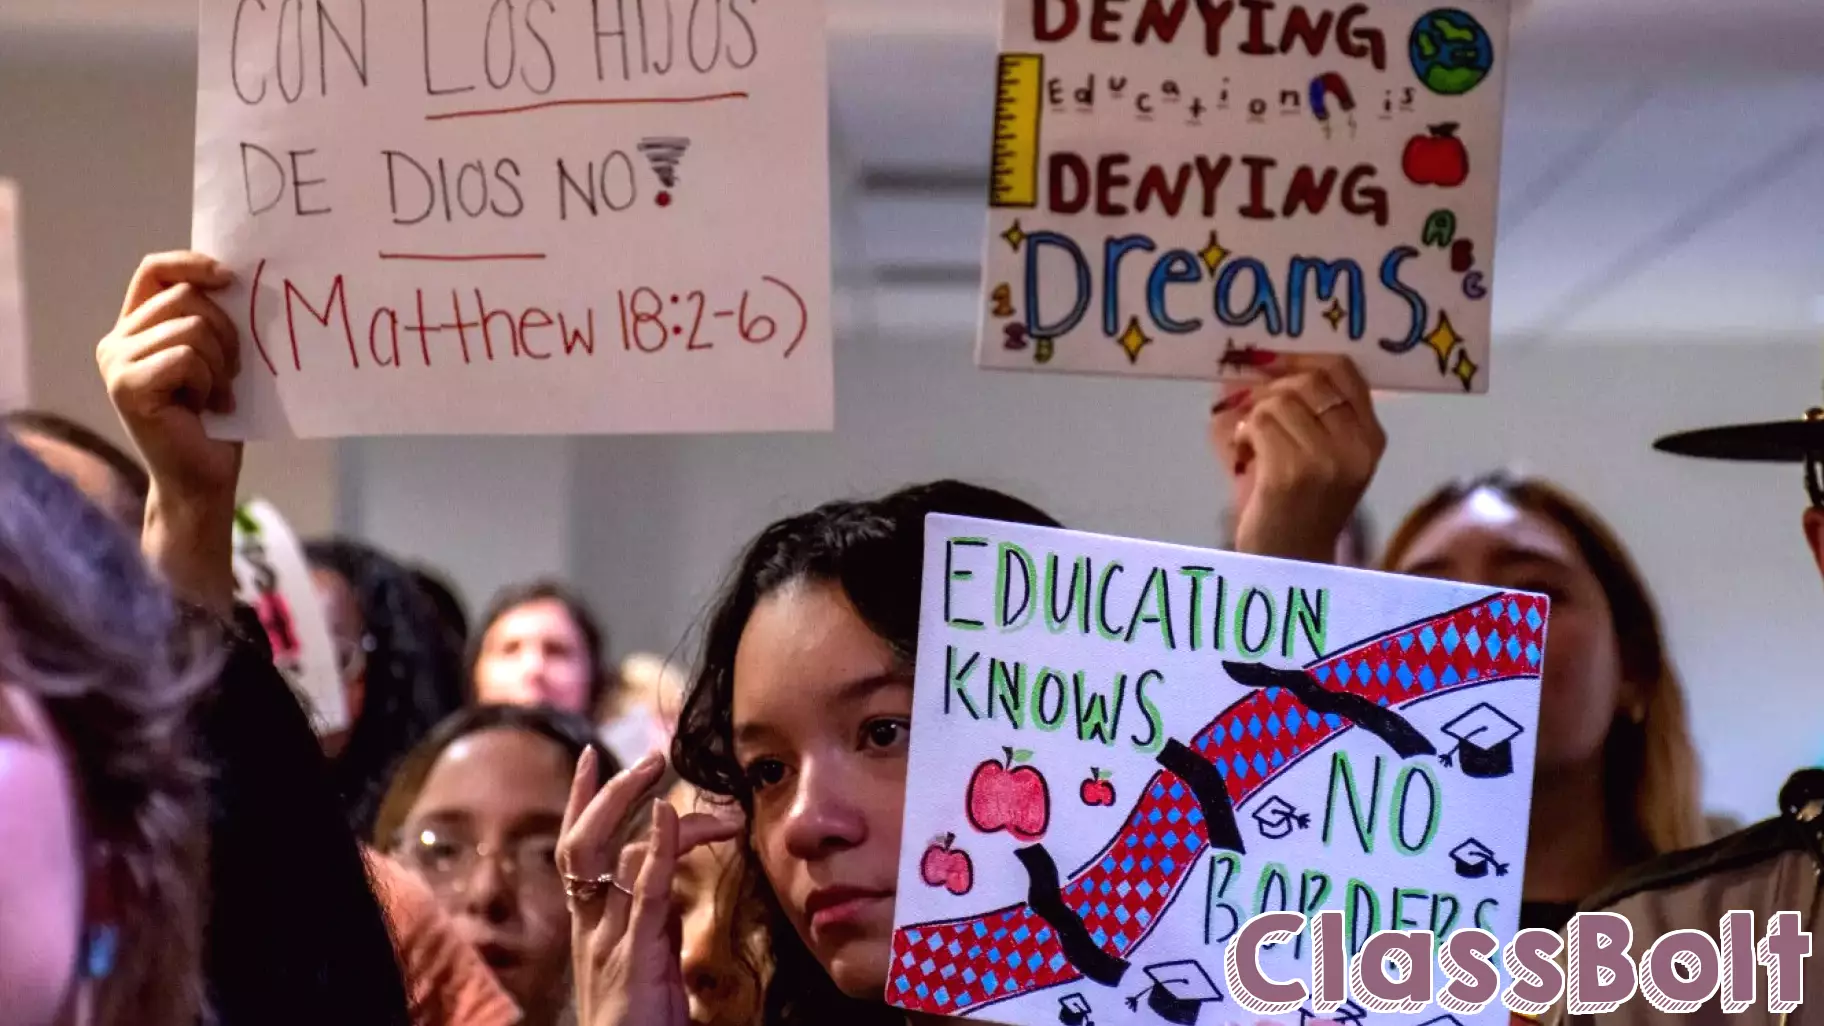 CON LOS HIJOS
DE DIOS NO!
(Matthew 18:2-6)
DENYING
Education is
DENYING
Dreams
A
B
C
1
2
3
EDUCATION
KNOWS
NO
BORDERS
ClassBolt